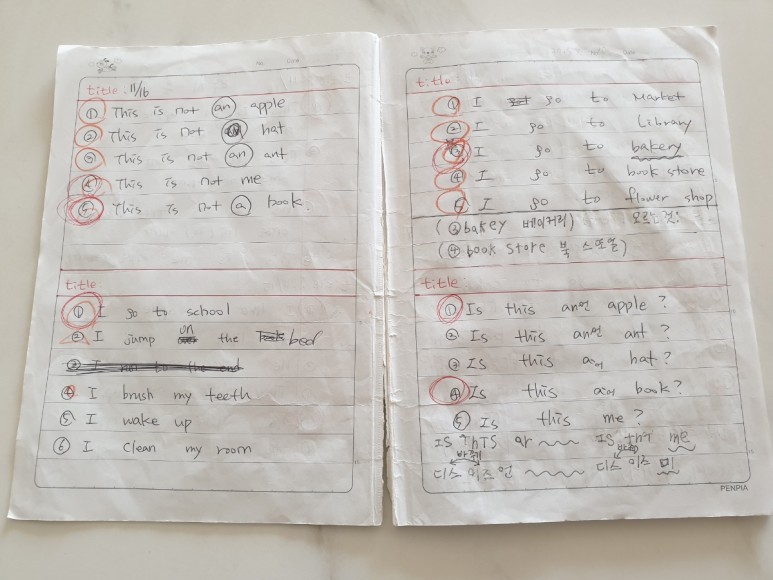 title: 11/16
① This is not an apple
② This is not hat
③ This is not an ant
④ This is not me
⑤ This is not a book.
title:
① I go to school
② I jump on the bed
④ I brush my teeth
⑤ I wake up
⑥ I clean my room
title:
① I go to Market
② I go to Library
③ I go to bakery
④ I go to book store
⑤ I go to flower shop
(③ bakey 베이커리) 모르는것:
(④ book store 북 스또얼)
title:
① Is this an언 apple?
② Is this an언 ant?
③ Is this a어 hat?
④ Is this a어 book?
⑤ Is this me?
IS ThTS 바꿰 me
디스 이즈 언 디스 이즈 미
PENPIA